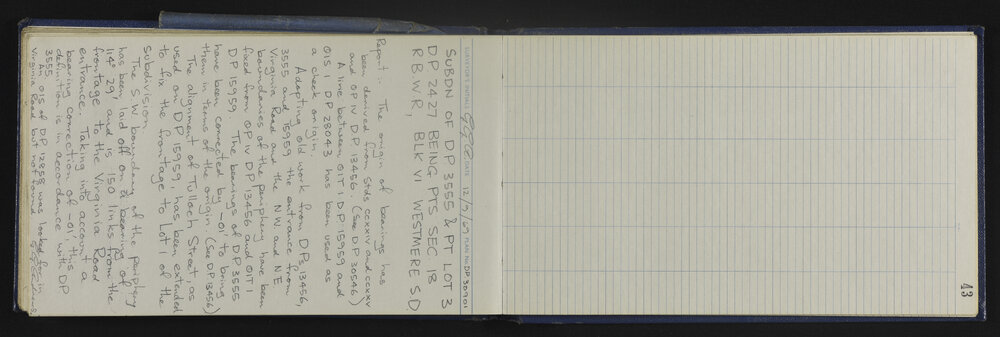 SURVEYOR'S INITIALS DATE 12/5/69 PLAN No. DP 30901
SUBDN OF DP 3555 & PT LOT 3
DP 2427 BEING PTS SEC 18
RBWR, BLK VI WESTMERE SD
Report... The origin of bearings has
been derived from Stds CCXXIV and CCXXV
and OP IV D.P. 13456. (See DP 30546)
A line between OIT I D.P. 15959 and
OIS I DP 28043 has been used as
a check origin.
Adopting old work from DPs 13456,
3555 and 15959 the entrance from
Virginia Road and the NW and NE
boundaries of the periphery have been
fixed from OP IV DP 13456 and OIT I
DP 15959. The bearings of DP 3555
have been corrected by -01' to bring
them in terms of the origin. (See DP 13456)
The alignment of Tulloch Street, as
used on DP 15959, has been extended
to fix the frontage to Lot 1 of the
subdivision.
The S.W boundary of the periphery
has been laid off on a bearing of
114° 29' and is 150 links from the
frontage to the Virginia Road
entrance. Taking into account a
bearing correction of -01' this
definition is in accordance with DP
3555.
An OIS of DP 12858 was looked for in
Virginia Road but not found
43